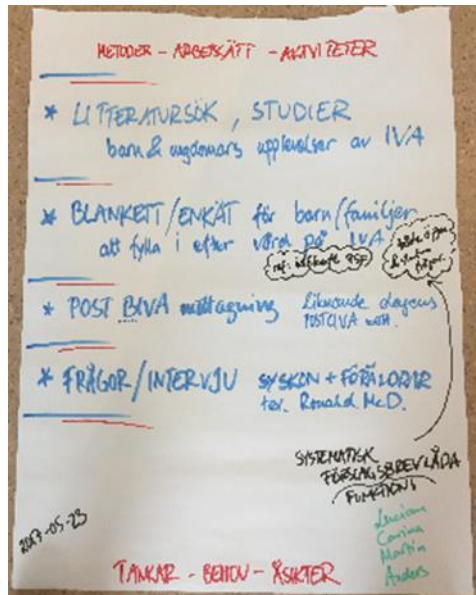 METODER - ARBETSSÄTT - AKTIVITETER
* LITTERATURSÖK, STUDIER
barn & ungdomars upplevelser av IVA
* BLANKETT/ENKÄT för barn/familjer
att fylla i efter vård på IVA
både öppna
& slutna
frågor
* POST BIVA mottagning liknande dagens
POSTCIVA mott.
* FRÅGOR/INTERVJU SYSKON + FÖRÄLDRAR
Ronald McD.
SYSTEMATISK
FÖRSLAGSBREVLÅDA
FUNKTION!
2017-05-23
Luciana
Carina
Martin
Anders
TANKAR - BEHOV - ÅSIKTER